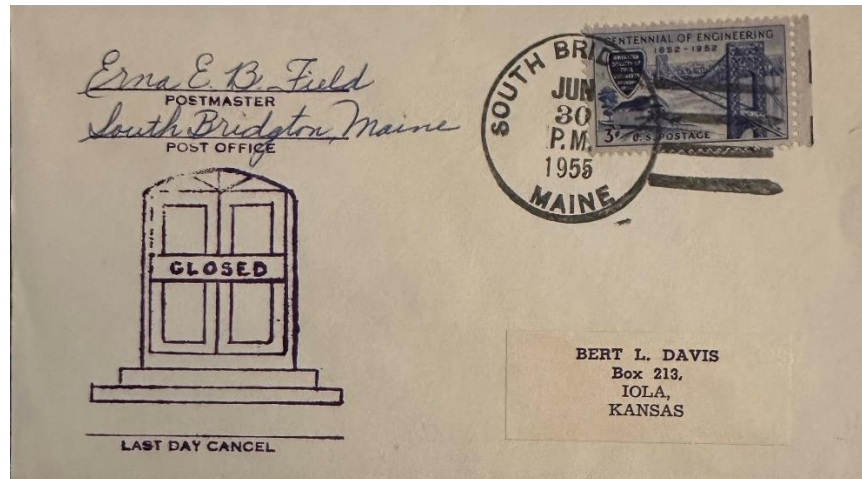 Erna E. B. Field
POSTMASTER
South Bridgton, Maine
POST OFFICE
CLOSED
LAST DAY CANCEL
SOUTH BRID
JUN
30
P.M.
1955
MAINE
CENTENNIAL OF ENGINEERING
1852-1952
3¢ U.S. POSTAGE
BERT L. DAVIS
Box 213,
IOLA,
KANSAS